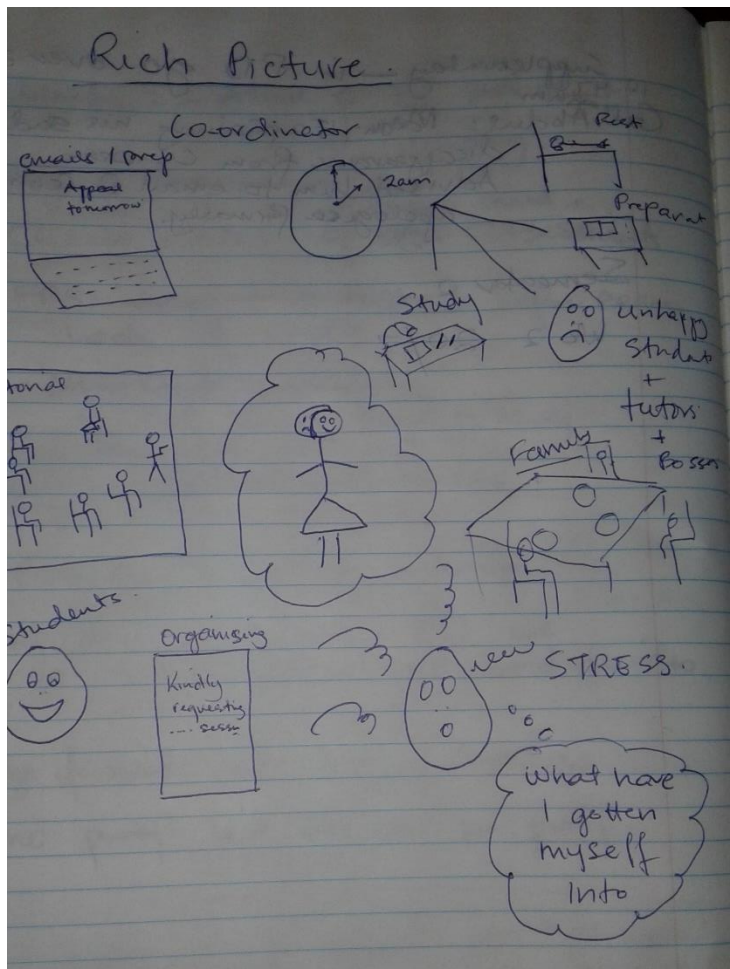 Rich Picture.
Co-ordinator
emails / prep
Appeal
tomorrow
2am
Rest
Preparat
Study
unhappy
Student
+
tutors
+
Family
torial
Students.
Organising
Kindly
requesting
STRESS.
What have
I gotten
myself
Into